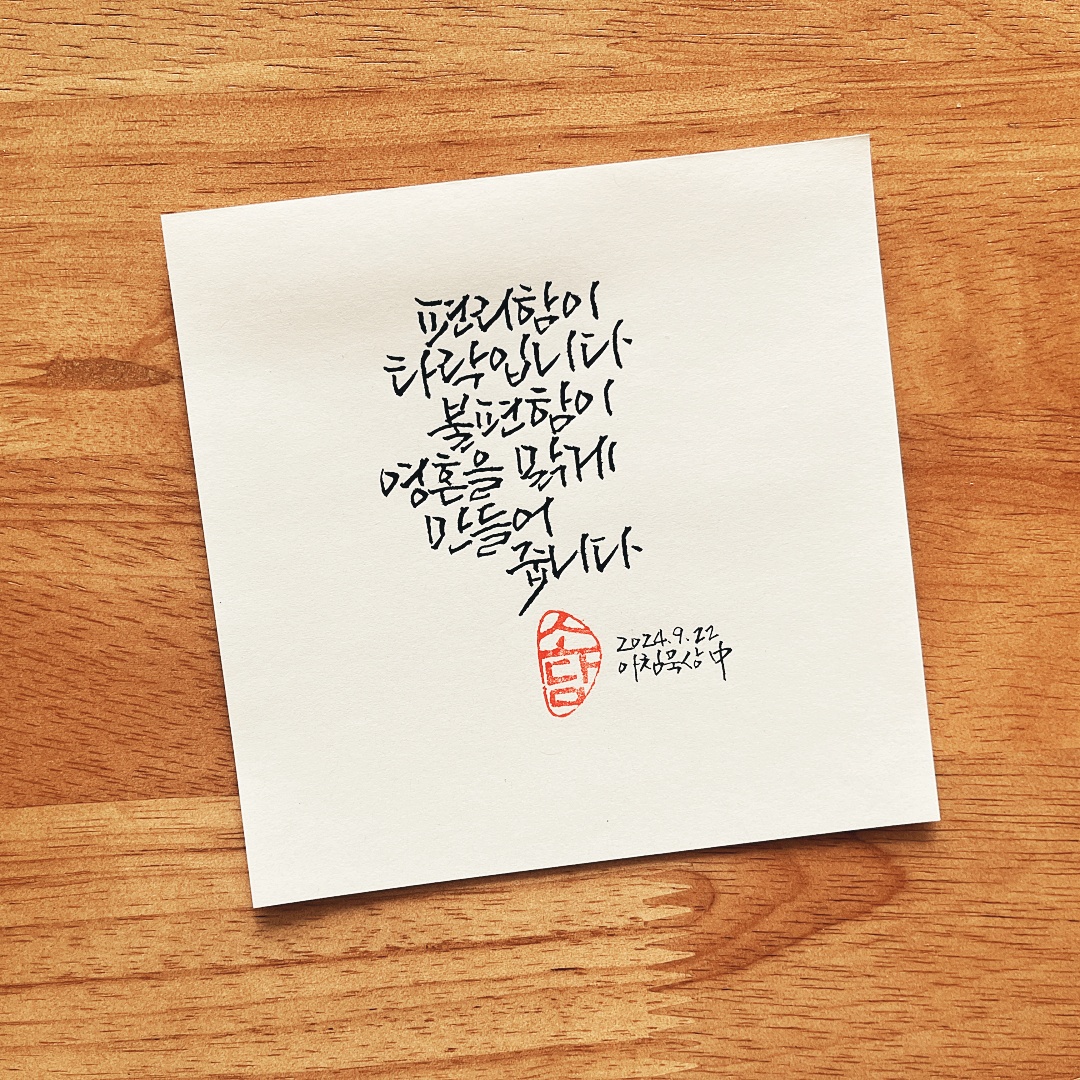 편리함이
타락입니다
불편함이
영혼을 맑게
만들어
줍니다
소담
2024.9.22
아침묵상 中